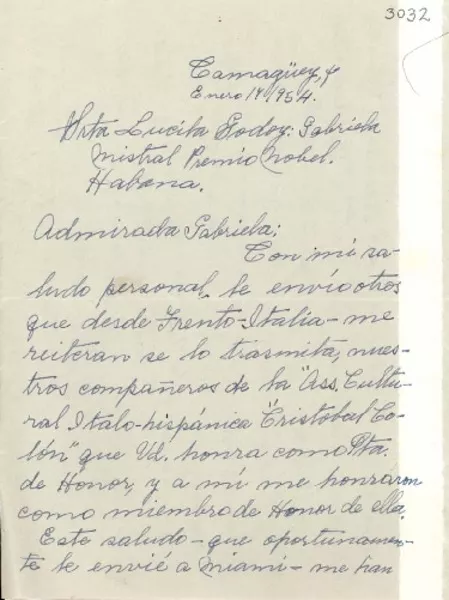 3032
Camagüey, y
Enero 19/954.
Srta Lucila Godoy: Gabriela
Mistral Premio Nobel.
Habana.
Admirada Gabriela:
Con mi sa-
ludo personal te envío otros
que desde Trento-Italia-me
reiteran se lo trasmita, nues-
tros compañeros de la "Ass. Cultu-
ral Italo-hispánica "Cristobal Co-
lón" que Ud. honra como Pta.
de Honor, y a mí me honraron
como miembro de Honor de ella.
Este saludo-que oportunamen-
te le envié a Miami-me han